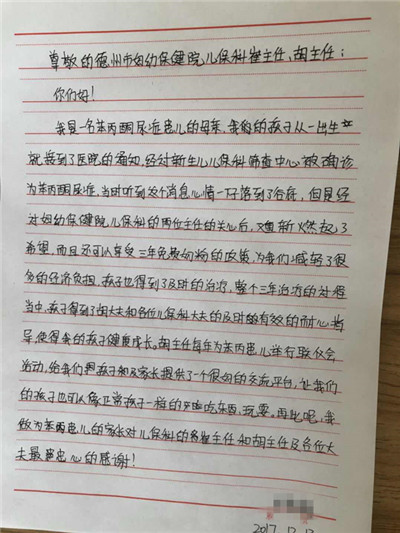 尊敬的德州市妇幼保健院儿保科崔主任、胡主任:
你们好!
我是一名苯丙酮尿症患儿的母亲,我的孩子从一出生
就接到了医院的通知,经过新生儿儿保科筛查中心被确诊
为苯丙酮尿症,当时听到这个消息心情一下落到了谷底,但是经
过妇幼保健院儿保科的两位主任的关心后,又重新燃起了
希望,而且还可以享受三年免费奶粉的政策,为我们减轻了很
多的经济负担,孩子也得到了及时的治疗,整个三年治疗的过程
当中,孩子得到了胡大夫和各位儿保科大夫的及时的有效的耐心指
导,使得我的孩子健康成长。胡主任每年为苯丙患儿举行联欢会
活动,给我们跟孩子和及家长提供了一个很好的交流平台,让我们
的孩子也可以像正常孩子一样的开心吃东西,玩耍。再此呢,我
做为苯丙患儿的家长对儿保科的崔主任和胡主任及各位大
夫最衷心的感谢!
2017.12.13